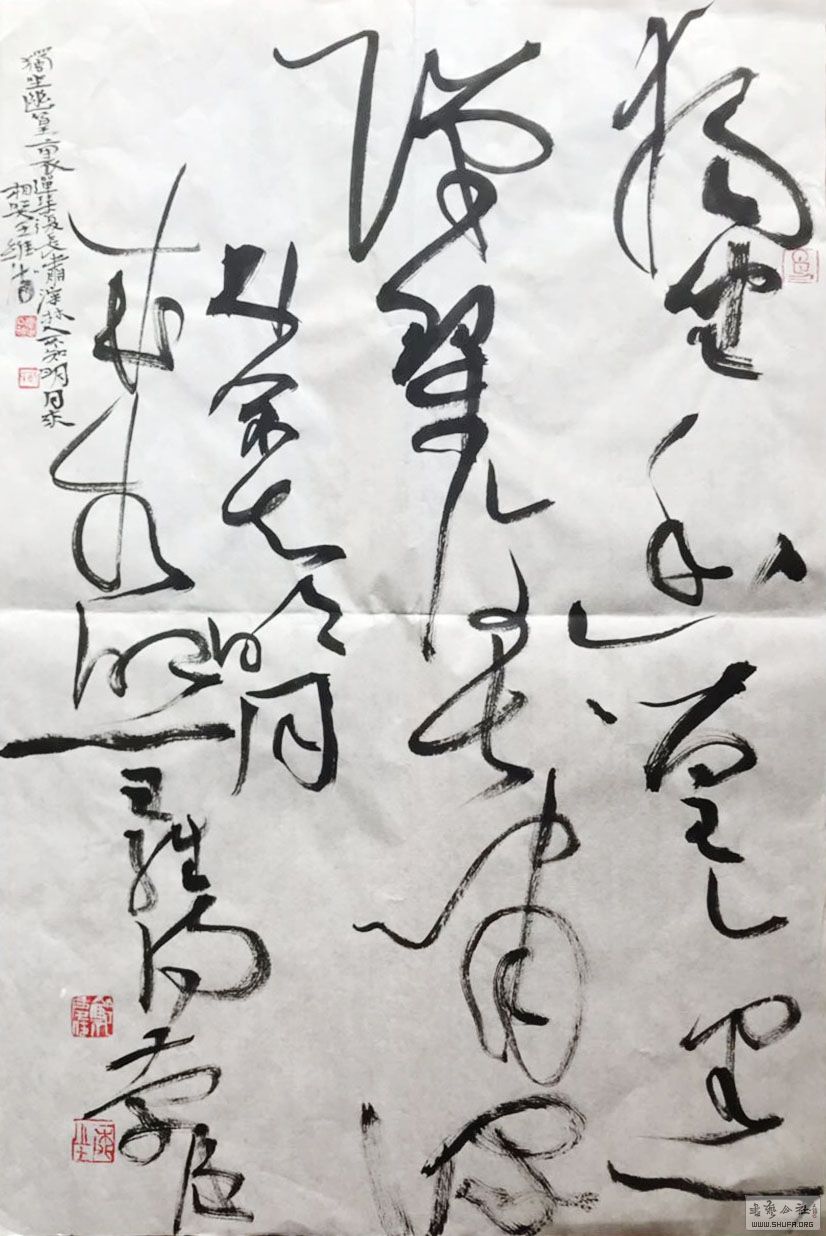 獨坐幽篁里
彈琴復長嘯深
林人不知明月
來相照王維詩
獨坐幽篁裏彈琴復長嘯深林人不知明月來
相照王維
WWW.SHUFA.ORG